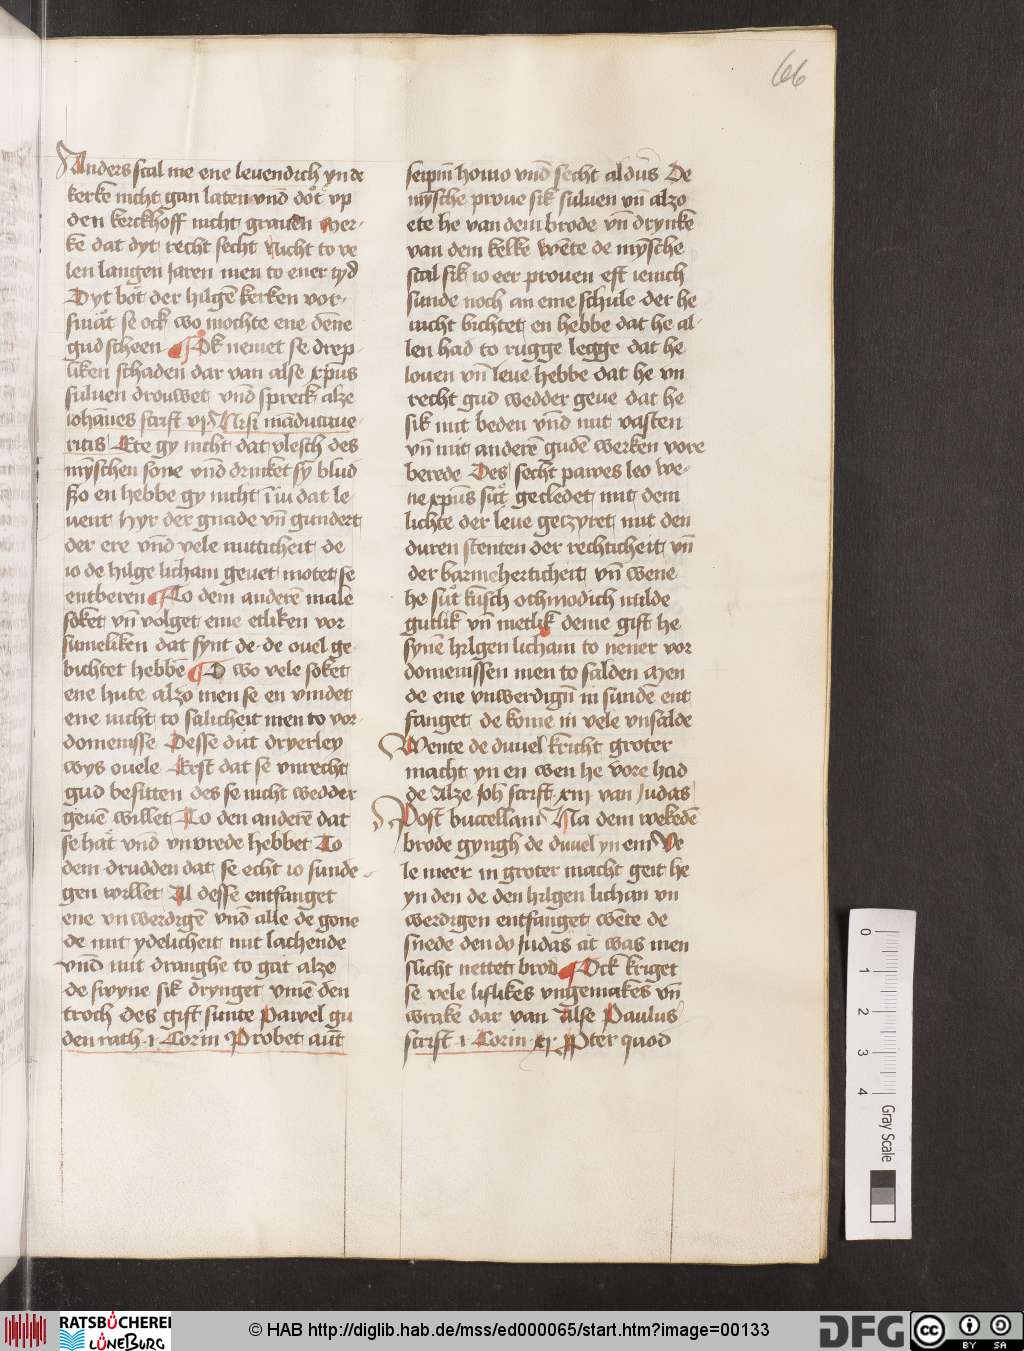 66
Anders scal me ene levendich yn de
kerke nicht gan laten vnd dot vp
den kerckhoff nicht graven Mer-
ke dat dyt recht secht Nicht to ve
len langen Jaren men to ener tyd
Dyt bot der hilgē kerken vor-
smat se ock wo mochte ene dēne
gud scheen Ok nemet se drep-
liken schaden dar van alse xp̄us
suluen drouwet vnd spreck alze
iohānes scrift vi Nisi māducaue-
ritis Ete gy nicht dat vlesch des
mȳschen sone vnd drinket sȳ blud
szo en hebbe gy nicht ī iu dat le-
uent Hyr der gnade vn̄ gundert
der ere vnd vele nutticheit de
io de hilge licham geuet motet se
entberen To dem anderē male
soket vn̄ volget eme etliken vor
sumeliken dat synt de de ouel ge
bichtet hebbē O wo vele soket
ene hute alzo men se en vindet
ene nicht to salicheit men to vor-
domenisse Desse dut dryerley
wys ouele Erst dat se vnrecht
gud besitten des se nicht wedder
geuē willet To den anderē dat
se hat vnd vnvrede hebbet To
dem drudden dat se echt io sunde-
gen willet Al desse entfanget
ene vnwerdigē vnd alle de gone
de mit ydelicheit mit lachende
vnd mit dranghe to gat alze
de swyne sik drynget vmē den
troch des gift sunte Pawel gu
den rath i Corin Probet aūt
seipm̄ homo vnd secht aldus De
mȳsche proue sik suluen vn̄ alzo
ete he van dem brode vn̄ drynke
van dem kelke Wēte de mȳsche
scal sik io eer prouen eft ienich
sunde noch an eme schule der he
nicht bichtet en hebbe dat he al-
len had to rugge legge dat he
louen vn̄ leue hebbe dat he vn
recht gud wedder geue dat he
sik mit beden vnd mit vasten
vn̄ mit anderē gudē werken vore
berede Des secht pawes leo we-
ne xp̄us sut gecledet mit dem
lichte der leue geczyret mit den
duren stenten der rechticheit vn̄
der barmeherticheit vn̄ wene
he sut kusch othmodich milde
gutlik vn̄ metlik deme gift he
synē hilgen licham to nener vor
domenissen men to salden Men
de ene vnwerdign̄ in sundē ent
fanget de kome in vele vnsalde
Wente de duuel kricht groter
macht yn en wen he vore had
de Alze Joh scrift xiij van Judas
Post buccellam Na dem wekedē
brode gyngh de duuel yn em Ve
le meer in groter macht geit he
yn den de den hilgen lichan vn
werdigen entfanget wēte de
snede den do Judas at was men
slicht nettet brod Ock kriget
se vele liflikes vngemakes vn̄
wrake dar van Alse Paulus
scrift i Corin xi Pter quod
0
1
2
3
4
Gray Scale
RATSBÜCHEREI
LÜNEBURG
© HAB http://diglib.hab.de/mss/ed000065/start.htm?image=00133
DFG
cc
BY SA